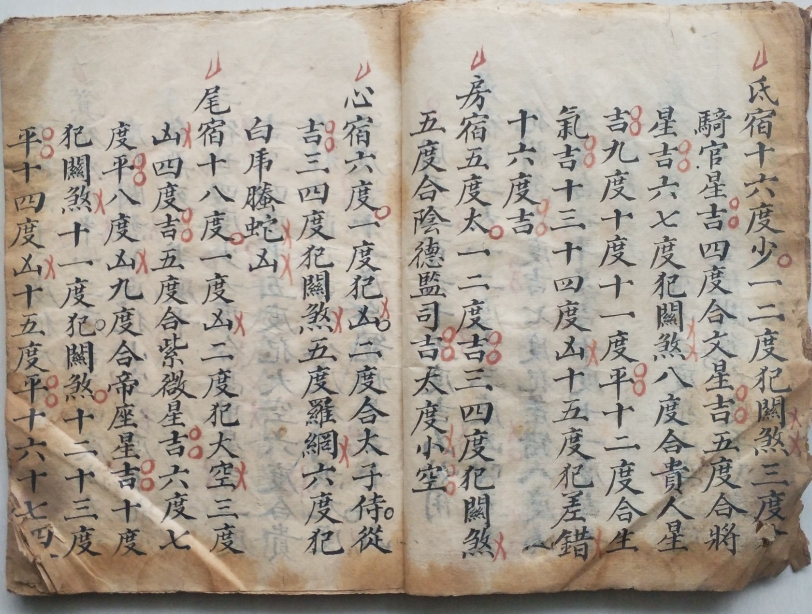 氐宿十六度少一二度犯關煞三度
騎官星吉四度合文星吉五度合將
星吉六七度犯關煞八度合貴人星
吉九度十度十一度平十二度合生
氣吉十三十四度凶十五度犯差錯
十六度吉
房宿五度太一二度吉三四度犯關煞
五度合陰德監司吉太度小空
心宿六度一度犯凶二度合太子侍從
吉三四度犯關煞五度羅網六度犯
白虎螣蛇凶
尾宿十八度一度凶二度犯大空三度
凶四度吉五度合紫微星吉六度七
度平八度凶九度合帝座星吉十度
犯關煞十一度犯關煞十二十三度
平十四度凶十五度平十六十七